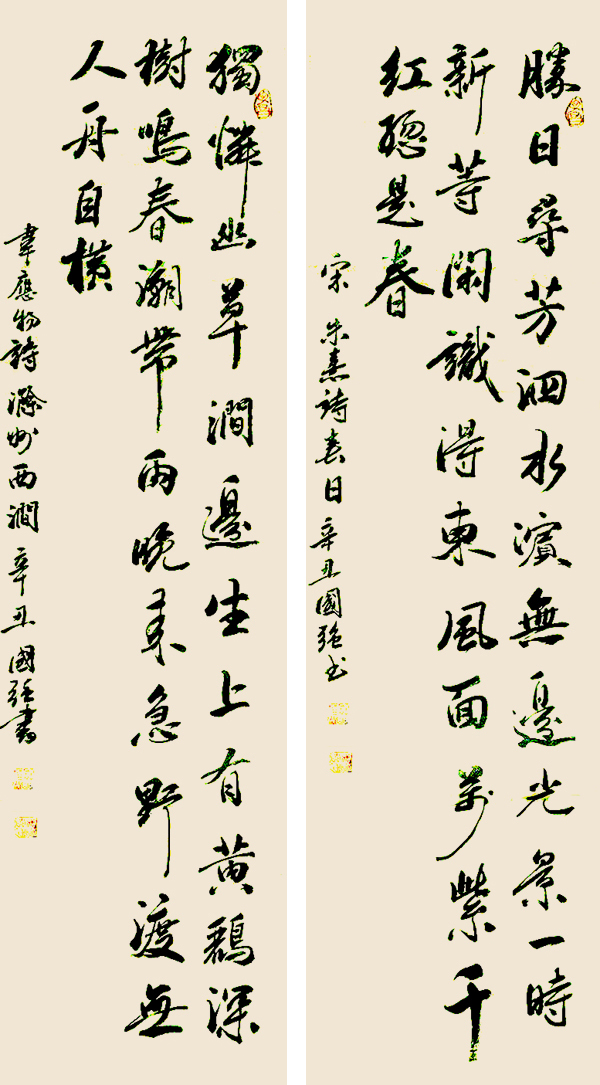 勝日尋芳泗水濱無邊光景一時
新等閑識得東風面萬紫千
紅總是春
宋 朱熹詩春日 辛丑國強書
獨憐幽草澗邊生上有黃鸝深
樹鳴春潮帶雨晚來急野渡無
人舟自橫
韋應物詩滁州西澗 辛丑國強書